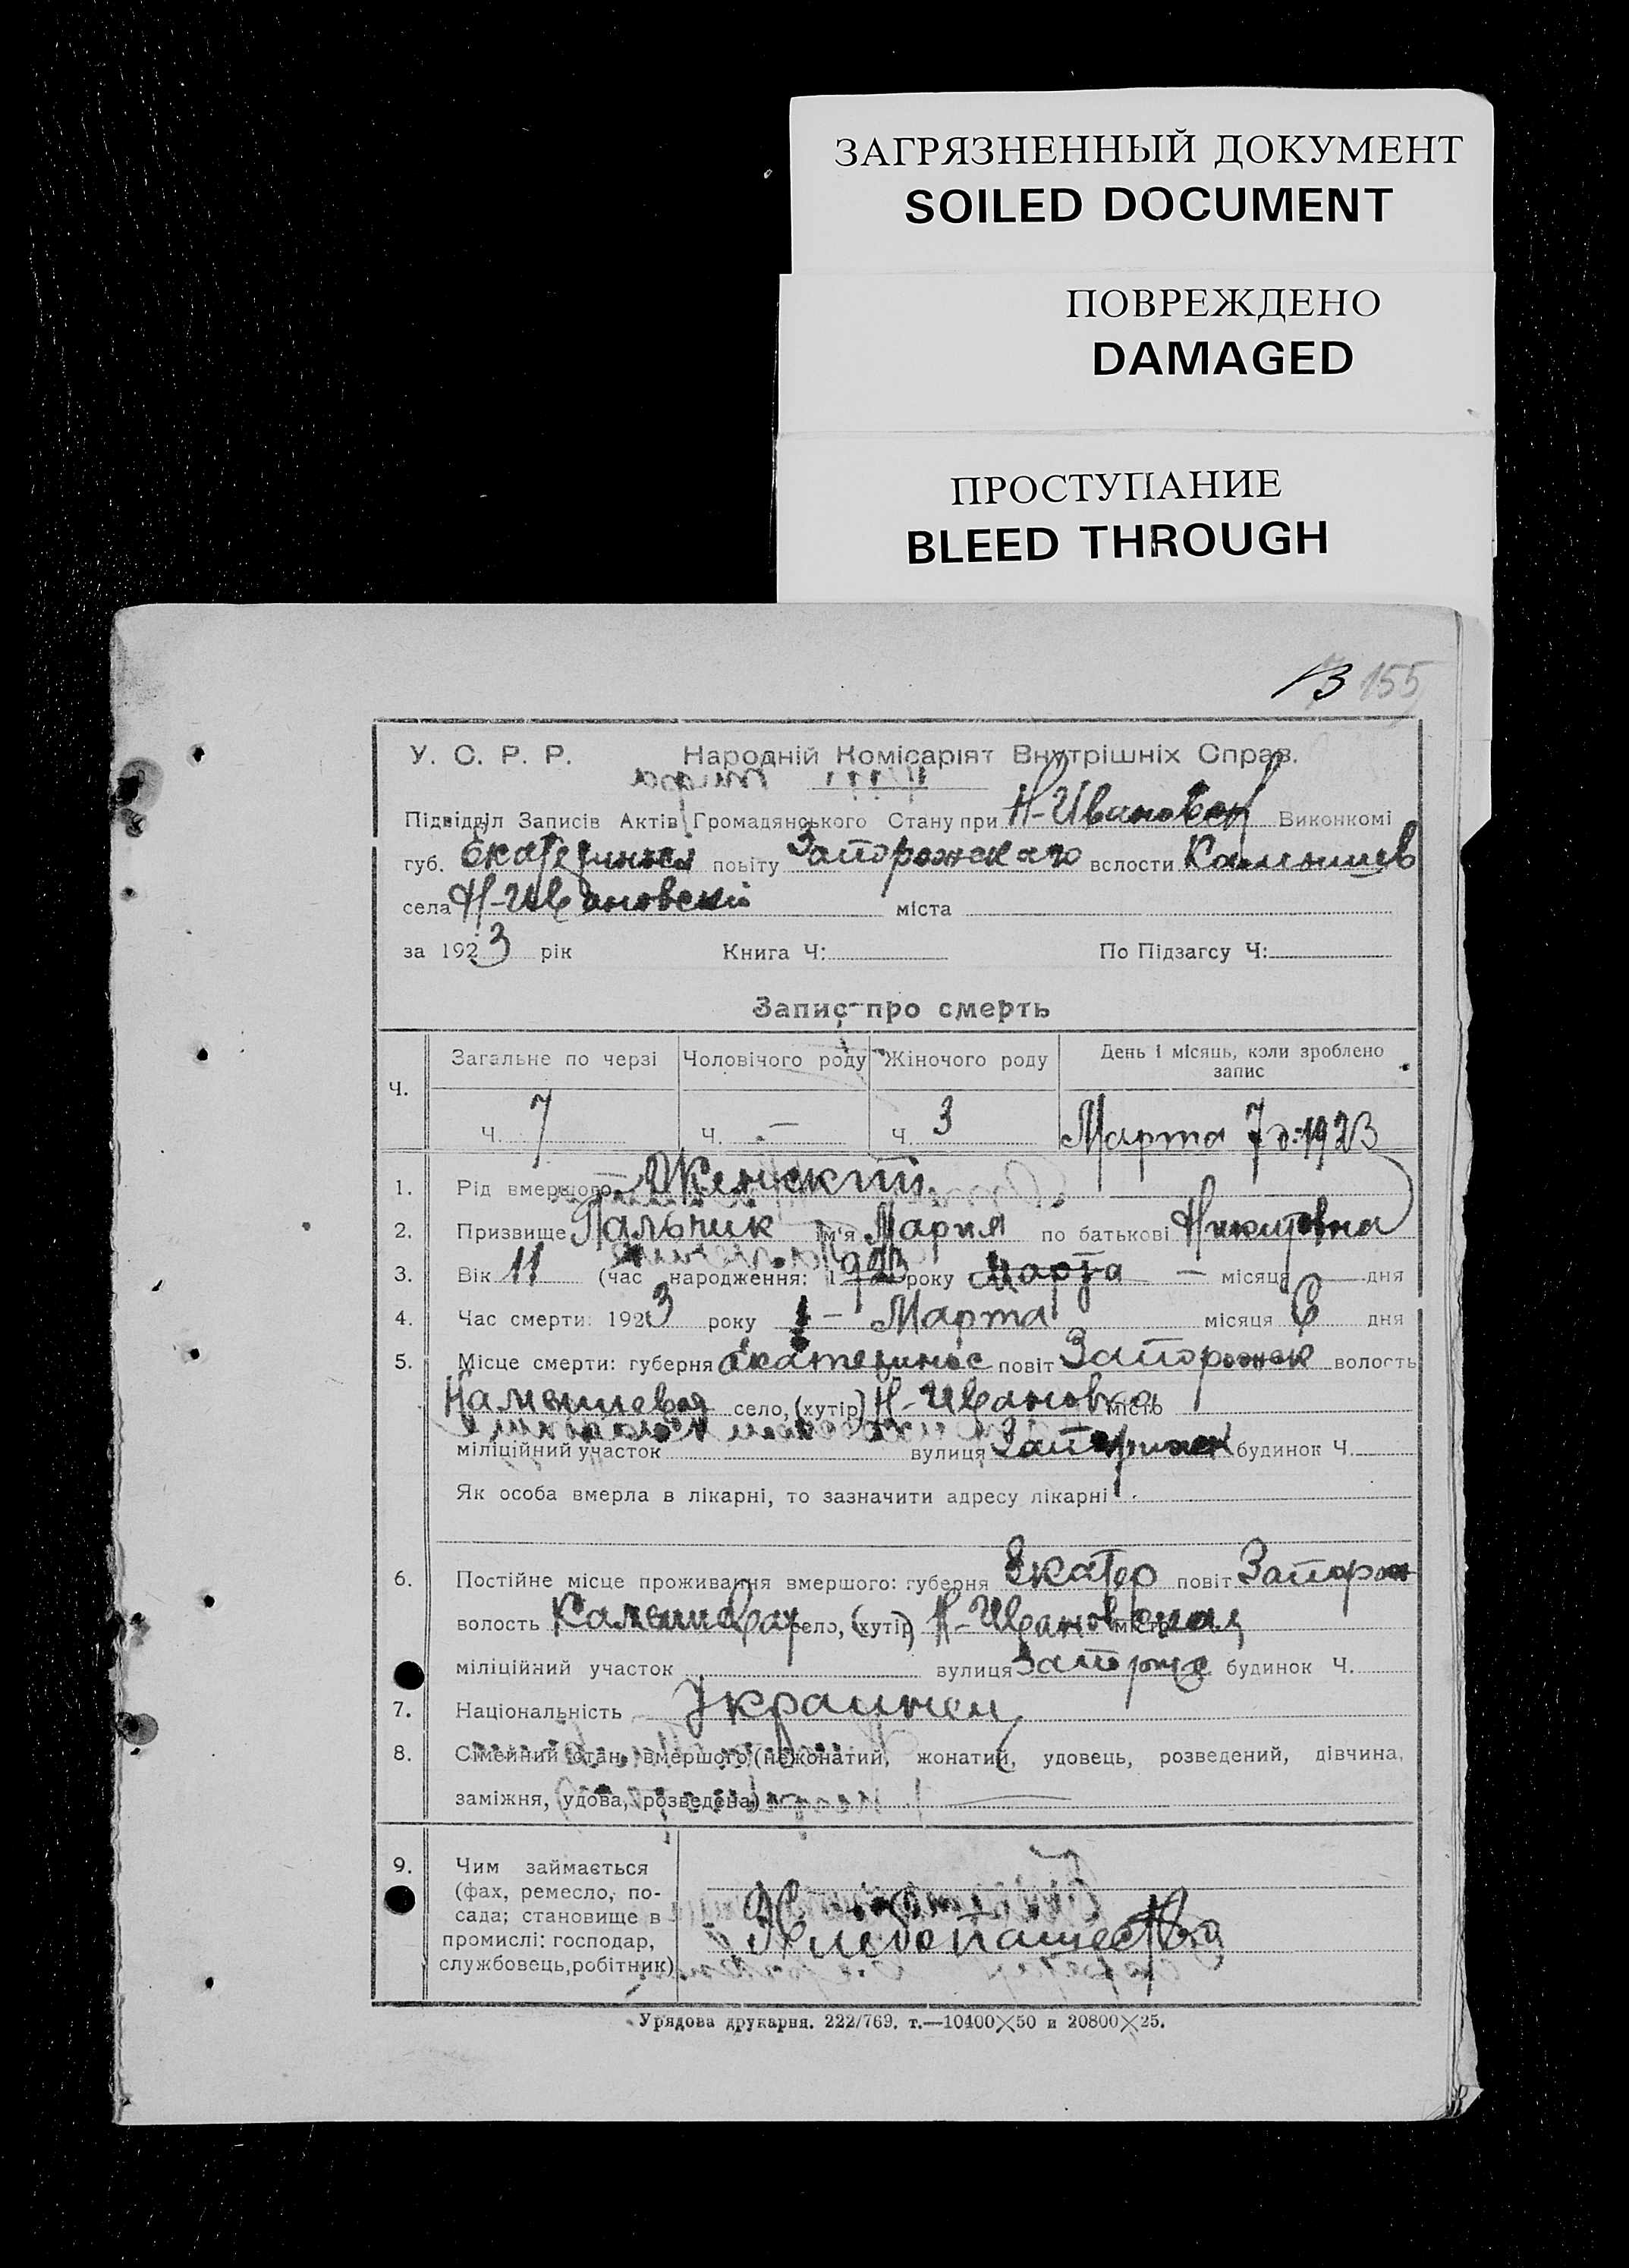 ЗАГРЯЗНЕННЫЙ ДОКУМЕНТ
SOILED DOCUMENT
ПОВРЕЖДЕНО
DAMAGED
ПРОСТУПАНИЕ
BLEED THROUGH
13 155
У. С. Р. Р. Народній Комісаріят Внутрішніх Справ.
Підвідділ Записів Актів Громадянського Стану при Н-Ивановск Виконкомі
губ. повіту Запорожскаго волости Камышев
села Н-Ивановскій міста
за 1923 рік Книга Ч: По Підзагсу Ч:
Запис про смерть
Загальне по черзі Чоловічого роду Жіночого роду День і місяць, коли зроблено запис
Ч.
Ч. 7 Ч. — Ч. 3 Марта 7 д. 1923
1. Рід вмершого Женский
2. Призвище Пальчик Ім'я Мария по батькові Никитовна
3. Вік 11 (час народження: 1923 року Марта — місяця — дня
4. Час смерти: 1923 року Марта місяця 6 дня
5. Місце смерти: губерня повіт Запорожск волость
Камышевая село, (хутір) Н-Ивановка місто
міліційний участок вулиця будинок Ч.
Як особа вмерла в лікарні, то зазначити адресу лікарні
6. Постійне місце проживання вмершого: губерня Екатер повіт Запорож
волость село, (хутір) Н-Ивановская місто
міліційний участок вулиця будинок Ч.
7. Національність Украинец
8. Сімейний стан вмершого (нежонатий, жонатий, удовець, розведений, дівчина,
заміжня, удова, розведена) —
9. Чим займається
(фах, ремесло, по-
сада; становище в
промислі: господар,
службовець, робітник)
Хлебопашество
Урядова друкарня. 222/769. т.—10400×50 и 20800×25.